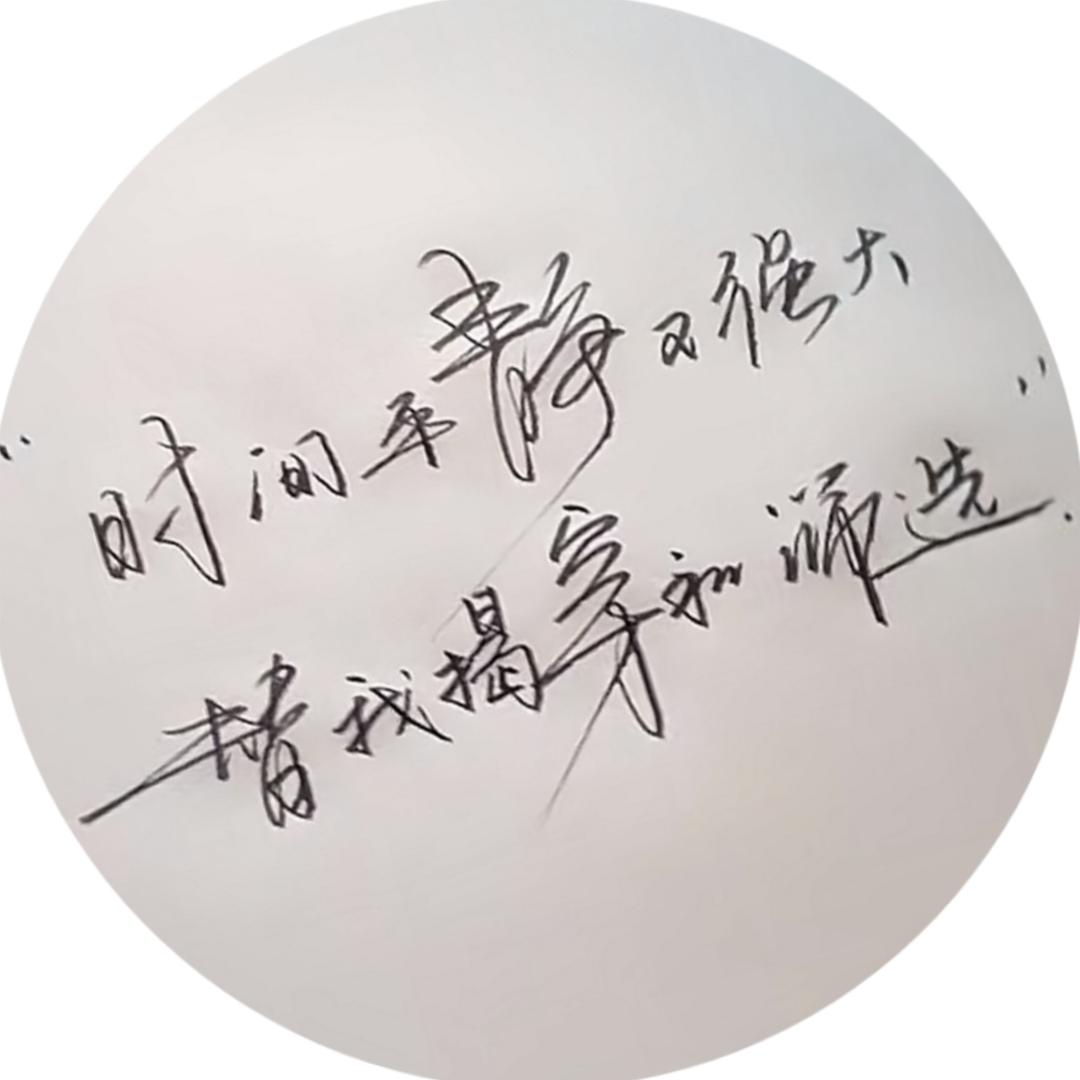 “时间平静又强大
替我揭穿和筛选.”